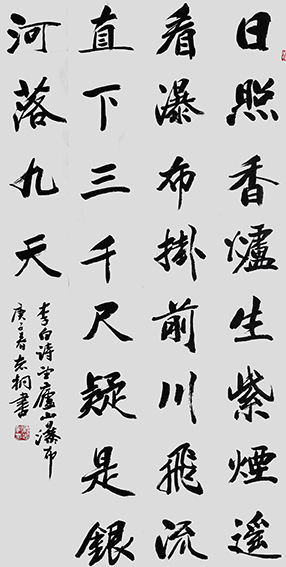 日照香爐生紫煙遥
看瀑布掛前川飛流
直下三千尺疑是銀
河落九天
李白詩望廬山瀑布
庚子春老桐書